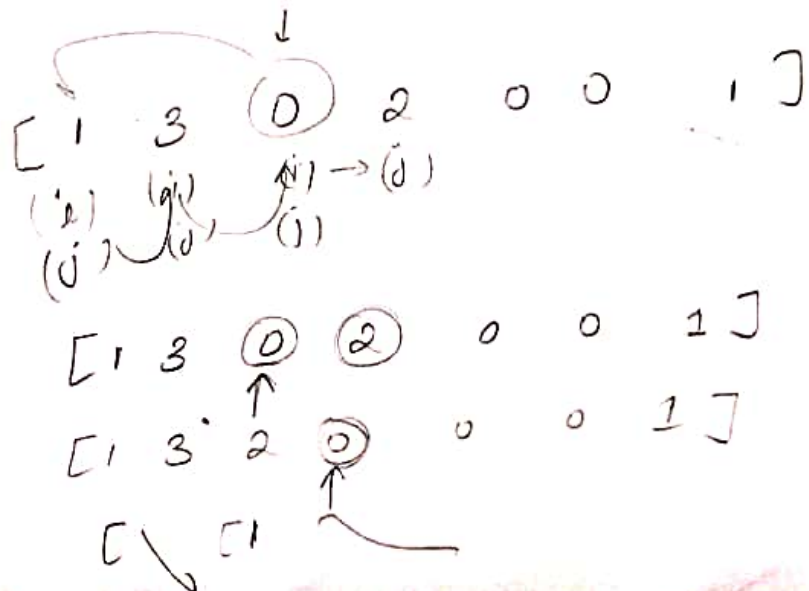 [ 1 3 0 2 0 0 1 ]
(i) (i) (i) → (j)
(j) (j) (j)
[ 1 3 0 2 0 0 1 ]
[ 1 3 2 0 0 0 1 ]
[ [ 1